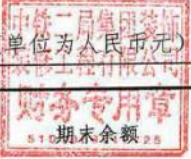 中铁二局集团装饰
装修工程有限公司
单位为人民币元）
财务专用章
期末余额